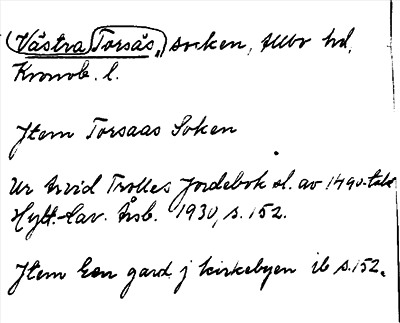 Västra Torsås, socken, Allbo hd,
Kronob. l.
Jtem Torsaas Soken
Ur Arvid Trolles Jordebok sl. av 1490-talet
Hylt.-Cav. Årsb. 1930, s. 152.
Jtem Een gard j kirkebyen ib s. 152.